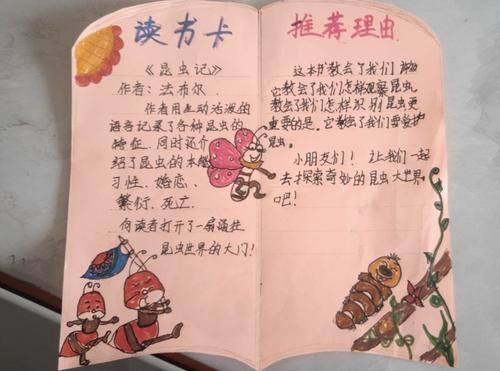 读书卡
《昆虫记》
作者：法布尔
作者用生动活泼的
语言记录了各种昆虫的
特征.同时还介
绍了昆虫的本能
习性.婚恋.
繁衍.死亡.
向读者打开了一扇通往
昆虫世界的大门！
推荐理由
这本书教会了我们
它教会了我们怎样观察昆虫
教会了我们怎样识别昆虫更
重要的是.它教会了我们要爱护
昆虫.
小朋友们！让我们一起
去探索奇妙的昆虫大世界
吧！